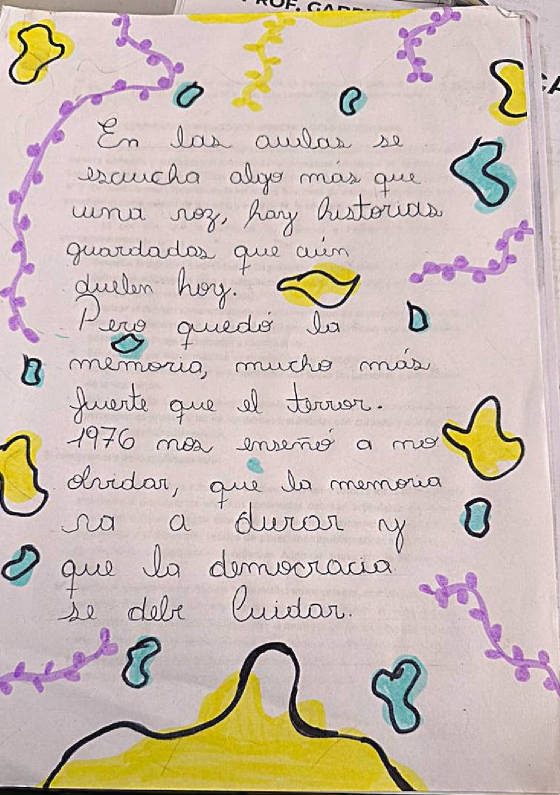 PROF.
En las aulas se
escucha algo más que
una voz, hay historias
guardadas que aún
duelen hoy.
Pero quedó la
memoria, mucho más
fuerte que el terror.
1976 nos enseñó a no
olvidar, que la memoria
va a durar y
que la democracia
se debe Cuidar.